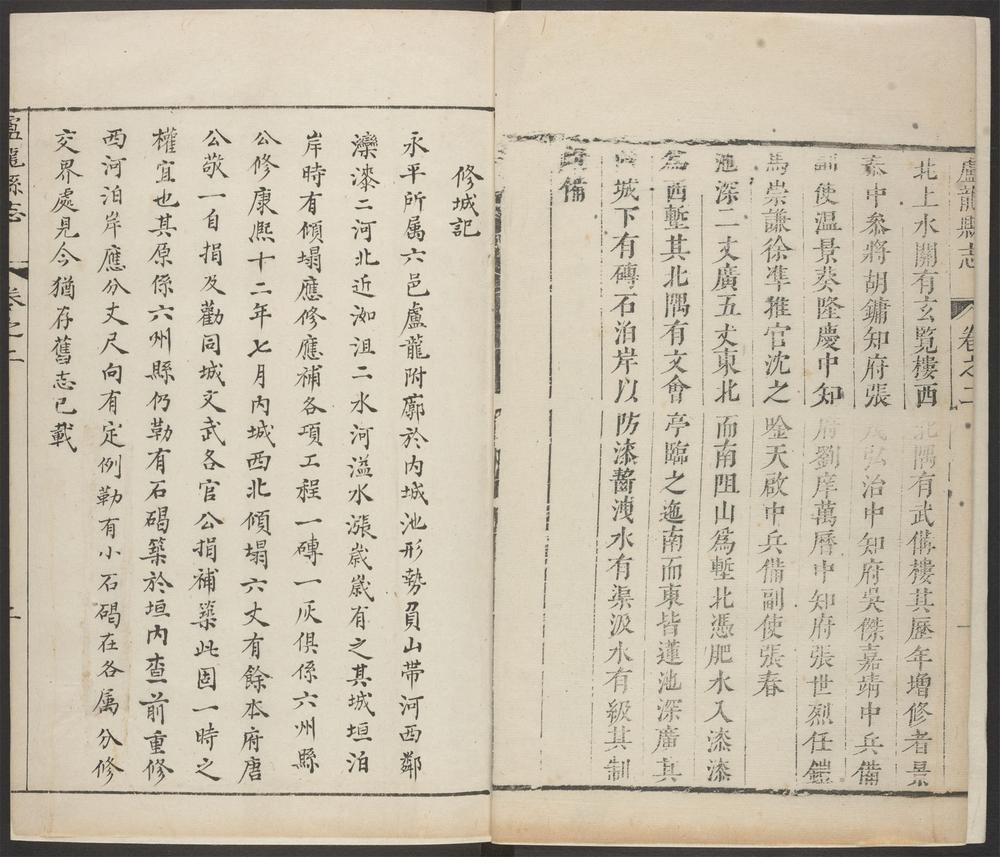 盧龍縣志 卷之二 一
北上水關有玄覽樓西北隅有武備樓其歷年增修者景
泰中參將胡鏞知府張茂弘治中知府吳傑嘉靖中兵備
副使溫景葵隆慶中知府劉庠萬曆中知府張世烈任鎧
馬崇謙徐準推官沈之唫天啟中兵備副使張春
池深二丈廣五丈東北而南阻山為塹北憑肥水入漆漆
為西塹其北隅有文會亭臨之迤南而東皆蓮池深廣其
城下有磚石泊岸以防漆齧洩水有渠汲水有級其制
備
修城記
永平所属六邑盧龍附廓於內城池形勢負山带河西鄰
灤漆二河北近洳沮二水河溢水漲歲歲有之其城垣泊
岸時有傾塌應修應補各項工程一磚一灰俱係六州縣
公修康熈十二年七月內城西北傾塌六丈有餘本府唐
公敬一自捐及勸同城文武各官公捐補築此固一時之
權宜也其原係六州縣仍勒有石碣築於垣內查前重修
西河泊岸應分丈尺向有定例勒有小石碣在各属分修
交界處見今猶存舊志已載
盧龍縣志 卷之二 二